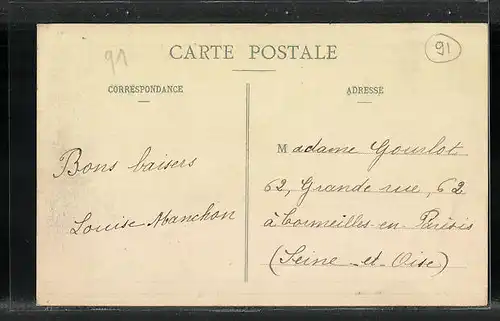 91
CARTE POSTALE
91
CORRESPONDANCE
ADRESSE
Bons baisers
Louise Manchon
Madame Gourlot
62, Grande rue, 62
à Cormeilles-en-Parisis
(Seine-et-Oise)